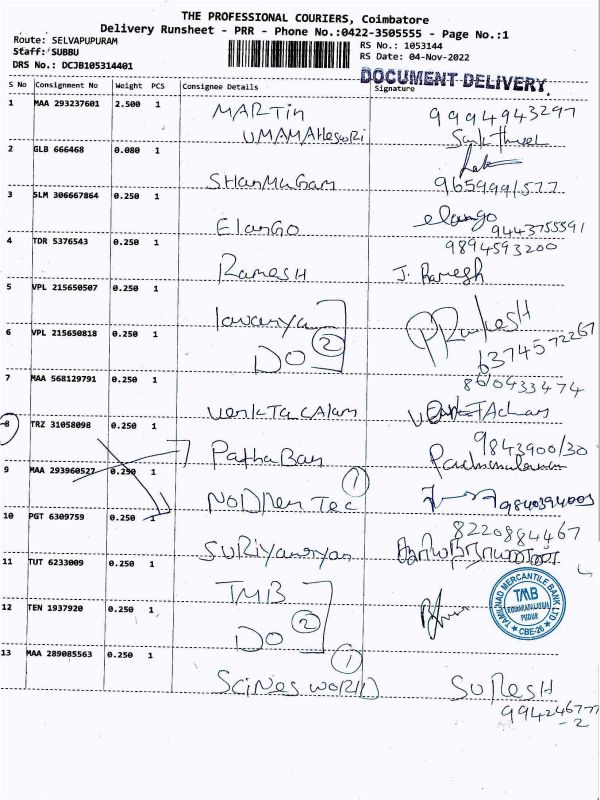 THE PROFESSIONAL COURIERS, Coimbatore
Delivery Runsheet - PRR - Phone No.:0422-3505555 - Page No.:1
Route: SELVAPUPURAM
Staff: SUBBU
DRS No.: DCJB105314401
RS No.: 1053144
RS Date: 04-Nov-2022
DOCUMENT DELIVERY
S No Consignment No Weight PCS Consignee Details Signature
1 MAA 293237601 2.500 1 MARTin 9994943297
UMAMAHeswRi
2 GLB 666468 0.080 1
SHanMuGam
3 SLM 306667864 0.250 1 ElanGO elango
9443755591
4 TDR 5376543 0.250 1 9894593200
RameSH J. Ramesh
5 VPL 215650507 0.250 1
lavanya
6 VPL 215650818 0.250 1 DO 2 6374572267
7 MAA 568129791 0.250 1 8610433474
VenkTaCAlam
8 TRZ 31058098 0.250 1
9 MAA 293960527 0.250 1
1
10 PGT 6309759 0.250 1 8220884467
11 TUT 6233009 0.250 1
TMB
TAMILNAD MERCANTILE BANK LTD
TMB
CBE-26
12 TEN 1937920 0.250 1 DO 2
13 MAA 289085563 0.250 1 1
SciNes WORlD SuResH
994246777
-2